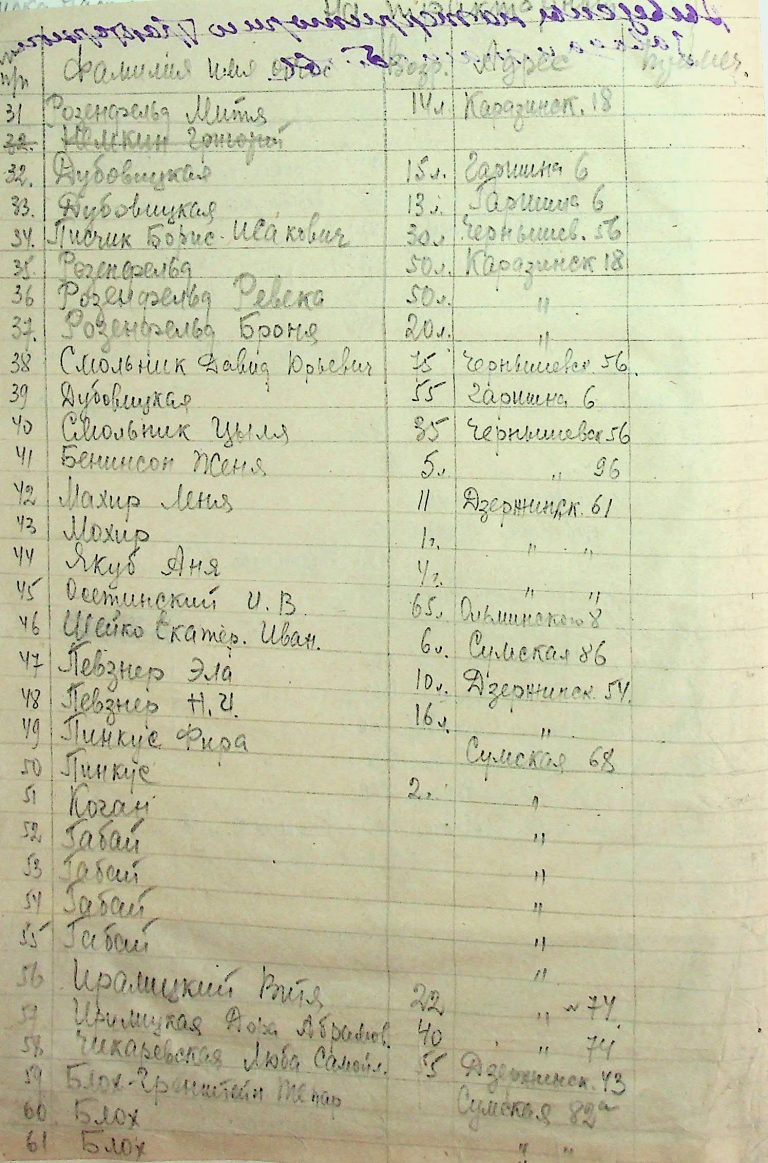 п/п Фамилия имя отчес Возр. Адрес
31 Розенфельд Митя 14л Каразинск. 18
32. Немкин Григорий
32. Дубовицкая 15л. Гаршина 6
33. Дубовицкая 13л. Гаршина 6
34. Писчик Борис Исакович 30л Чернышев. 56
35 Розенфельд 50л. Каразинск 18
36 Розенфельд Ревека 50л. "
37. Розенфельд Броня 20л. "
38 Смольник Давид Юрьевич 75 Чернышевск. 56.
39 Дубовицкая 55 Гаршина 6
40 Смольник Цыля 35 Чернышевск 56
41 Бенинсон Женя 5л. " 96
42 Махир Леня 11 Дзержинск. 61
43 Мохир 1г. " "
44 Якуб Аня 4г. " "
45 Осетинский И. В. 65л. Ольминского 8
46 Шейко Екатер. Иван. 6л. Сумская 86
47 Певзнер Эла 10л. Дзержинск. 54.
48 Певзнер Н.И. 16л. "
49 Пинкус Фира Сумская 68
50 Пинкус 2. "
51 Коган "
52 Габай "
53 Габай "
54 Габай "
55 Габай "
56 Иралицкий Витя 22 " ~ 74
57 Ирилицкая Дора Абрамов. 40 " 74
58 Чикаревская Люба Самойл. 55 Дзержинск. 43
59 Блох- Сумская 82а
60 Блох
61 Блох " "